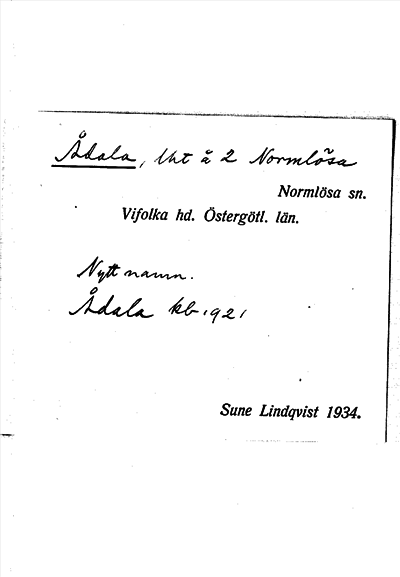 Ådala, lht å 2 Normlösa
Normlösa sn.
Vifolka hd. Östergötl. län.
Nytt namn.
Ådala kb 1921
Sune Lindqvist 1934.